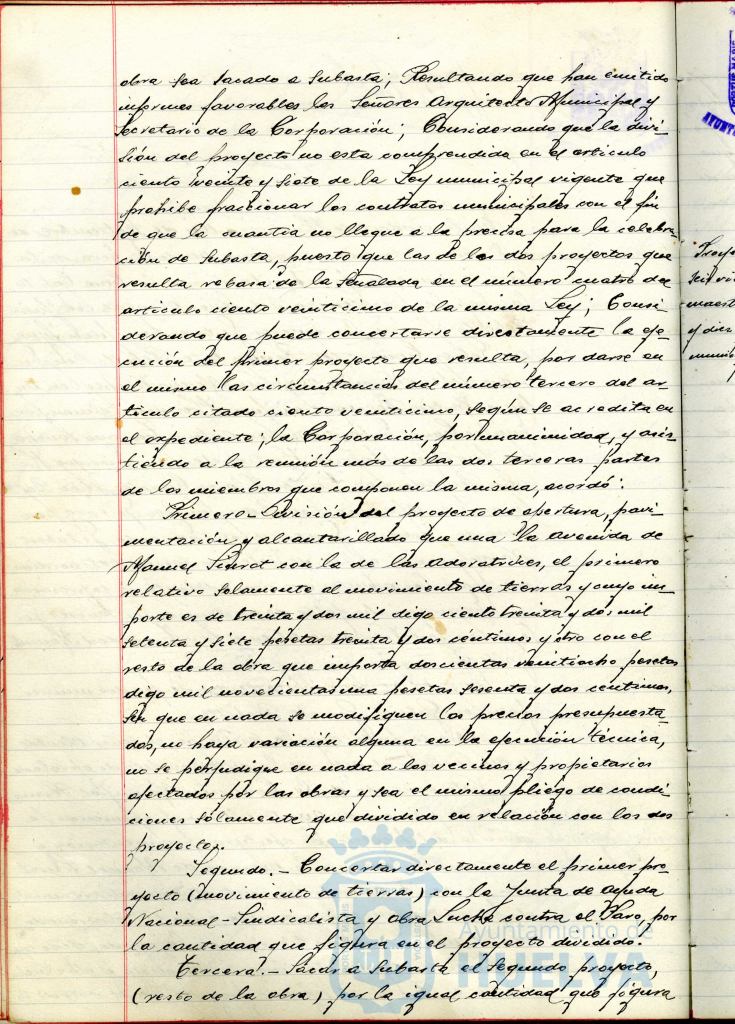 obra sea sacado a subasta; Resultando que han emitido
informes favorables los Señores Arquitecto Municipal y
Secretario de la Corporación; Considerando que la divi-
sión del proyecto no esta comprendida en el articulo
ciento veinte y siete de la Ley municipal vigente que
prohibe fraccionar los contratos municipales con el fin
de que la cuantia no llegue a la precisa para la celebra-
ción de subasta, puesto que las de los dos proyectos que
resulta rebasa de la señalada en el número cuatro del
articulo ciento veinticinco de la misma Ley; Consi-
derando que puede concertarse directamente la eje-
cución del primer proyecto que resulta, por darse en
el mismo las circunstancias del número tercero del ar-
tículo citado ciento veinticinco, según se acredita en
el expediente; la Corporación, por unanimidad, y asis-
tiendo a la reunión más de las dos terceras partes
de los miembros que componen la misma, acordó:
Primero.- División del proyecto de apertura, pavi-
mentación y alcantarillado que una la avenida de
Manuel Siurot con la de las Adoratrices, el primero
relativo solamente al movimiento de tierras y cuyo im-
porte es de treinta y dos mil digo ciento treinta y dos mil
setenta y siete pesetas treinta y dos centimos y otro con el
resto de la obra que importa doscientas veintiocho pesetas
digo mil novecientas una pesetas sesenta y dos centimos,
sin que en nada se modifiquen los precios presupuesta-
dos, no haya variación alguna en la ejecución técnica,
no se perjudique en nada a los vecinos y propietarios
afectados por las obras y sea el mismo pliego de condi-
ciones solamente que dividido en relación con los dos
proyectos.
Segundo.- Concertar directamente el primer pro-
yecto (movimiento de tierras) con la Junta de Ayuda
Nacional-Sindicalista y obra Lucha contra el Paro, por
la cantidad que figura en el proyecto dividido.
Tercera.- Sacar a subasta el segundo proyecto,
(resto de la obra) por la igual cantidad que figura
Ayuntamiento de
HUELVA